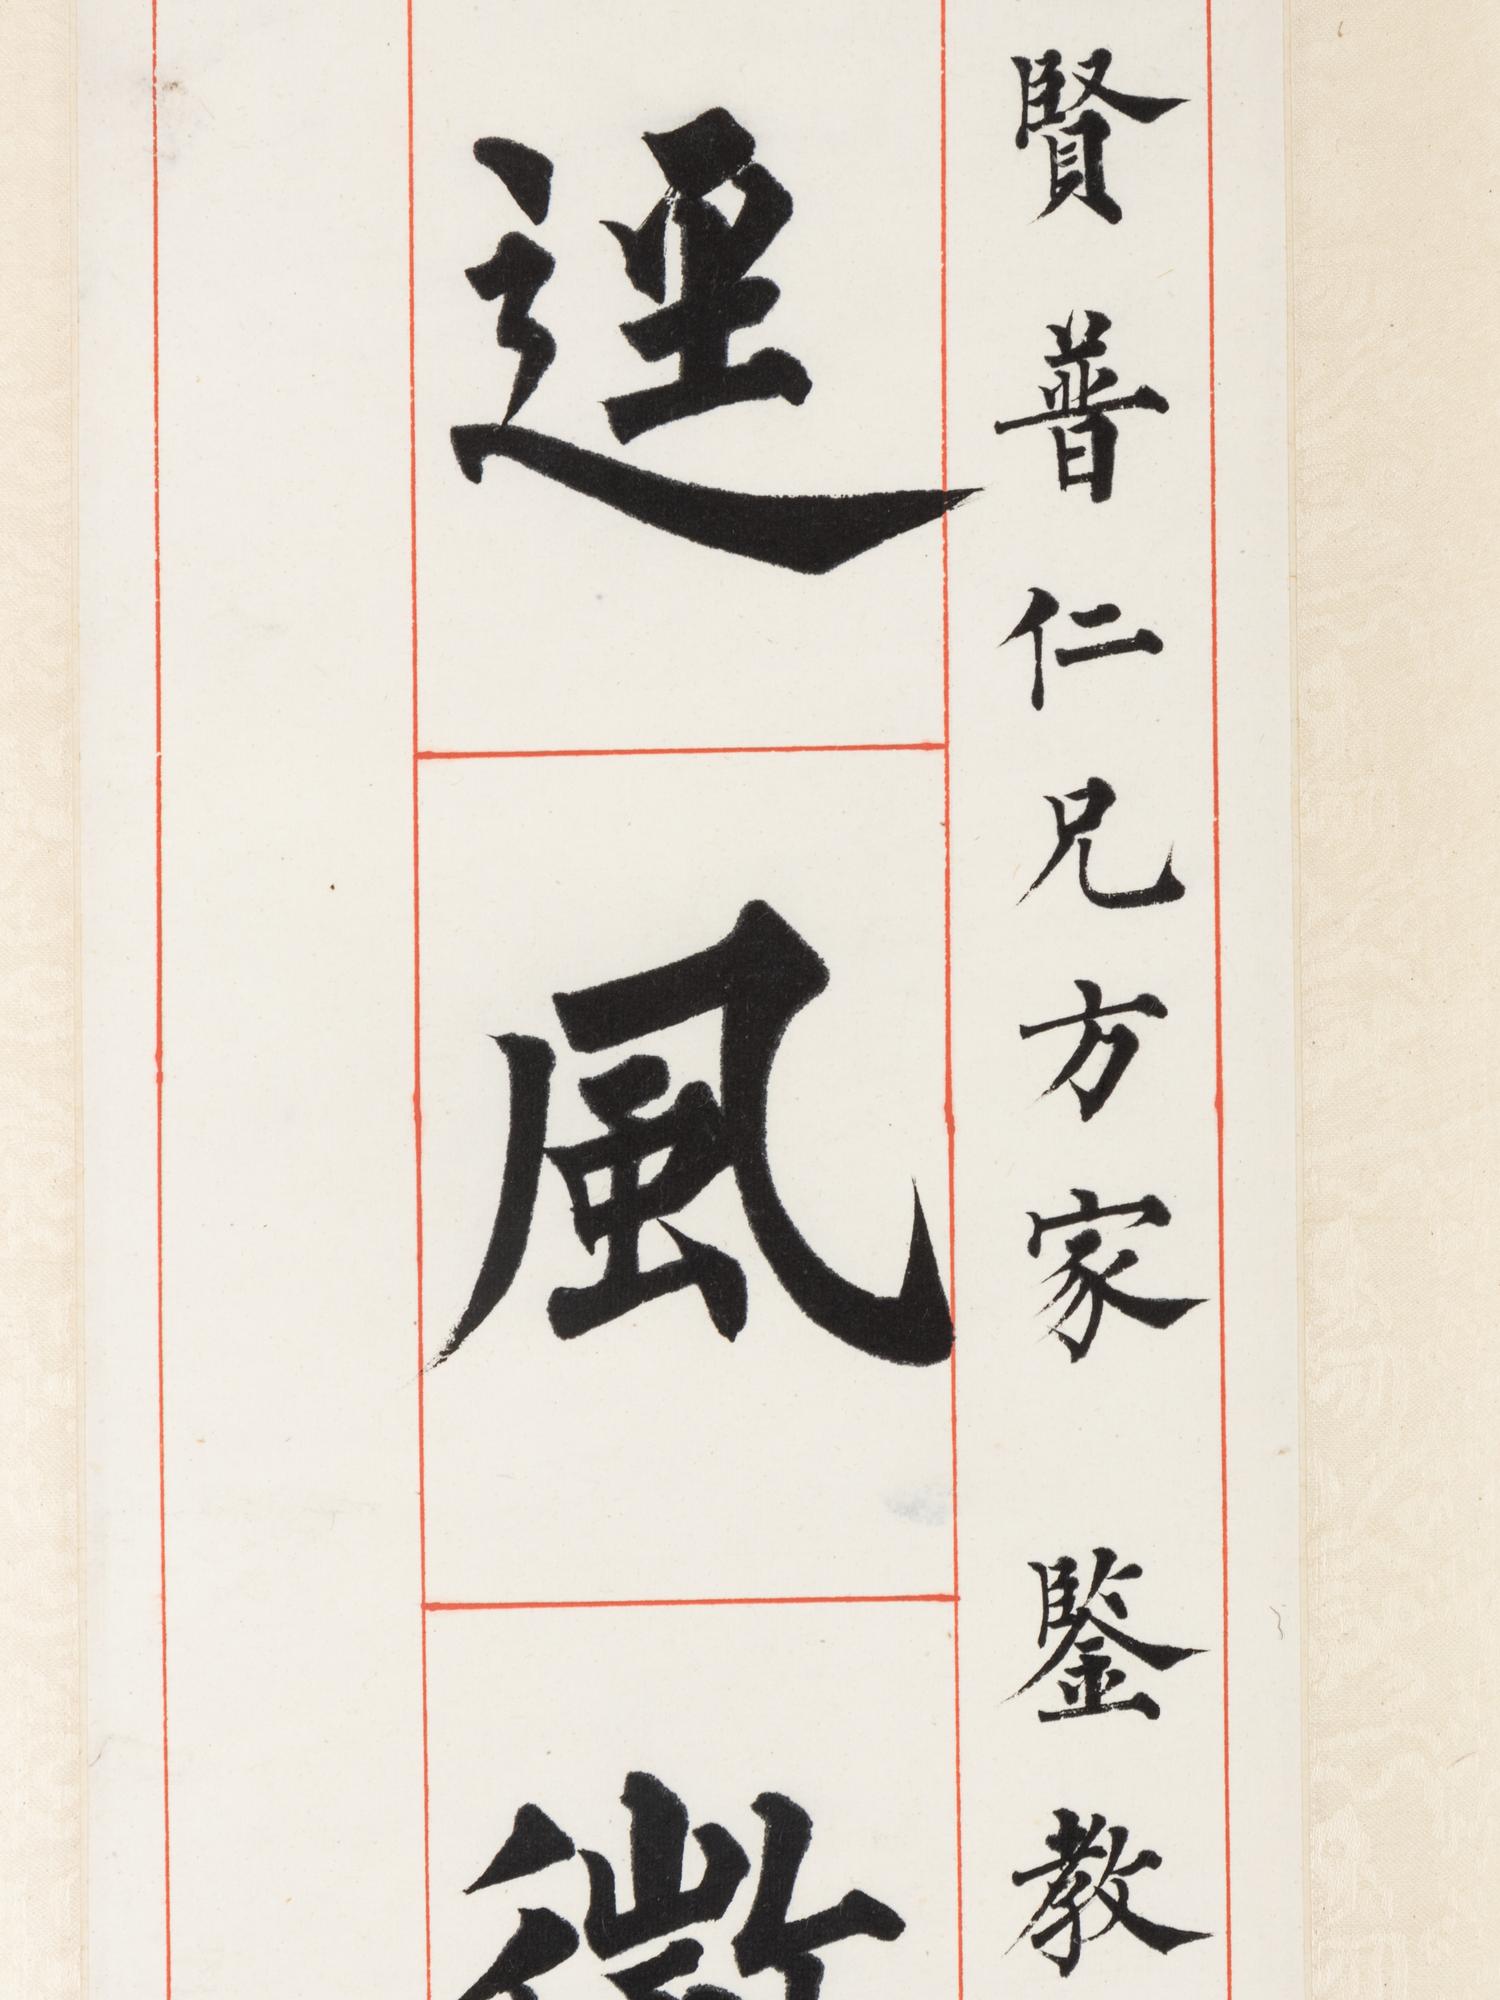 賢普仁兄方家 鑒教
逕風